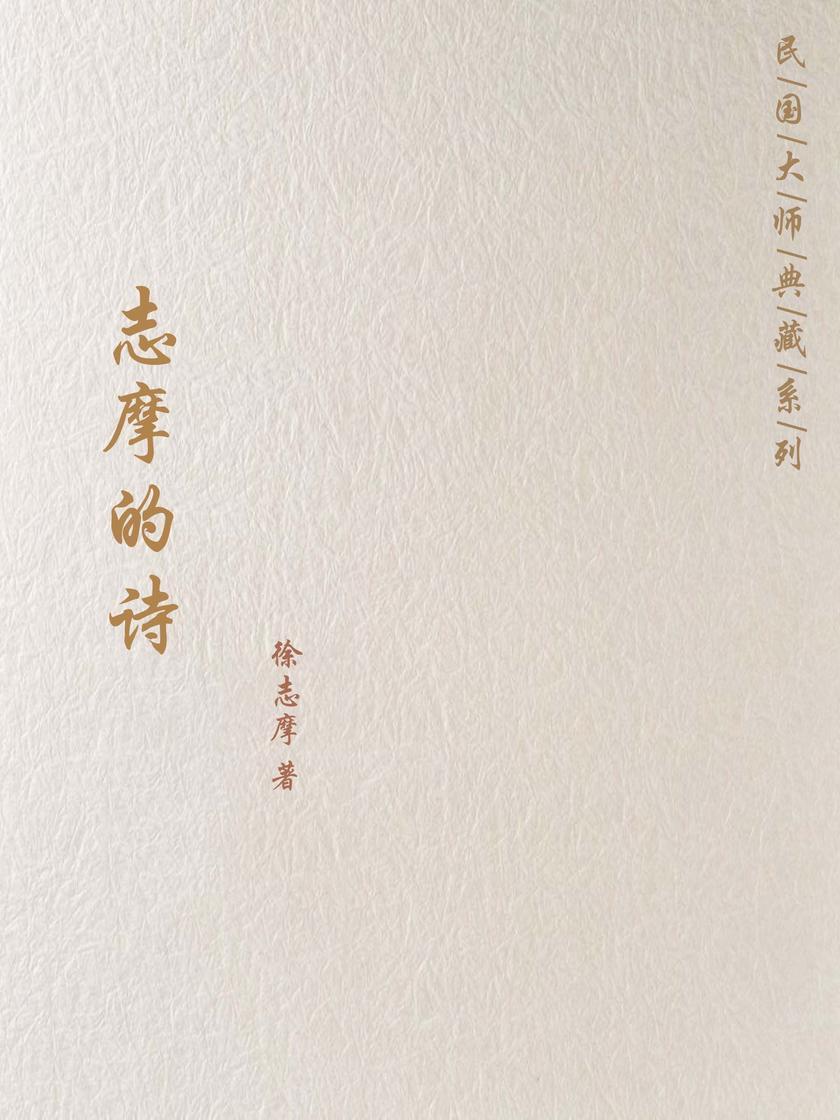 民/国/大/师/典/藏/系/列
志摩的诗
徐志摩 著